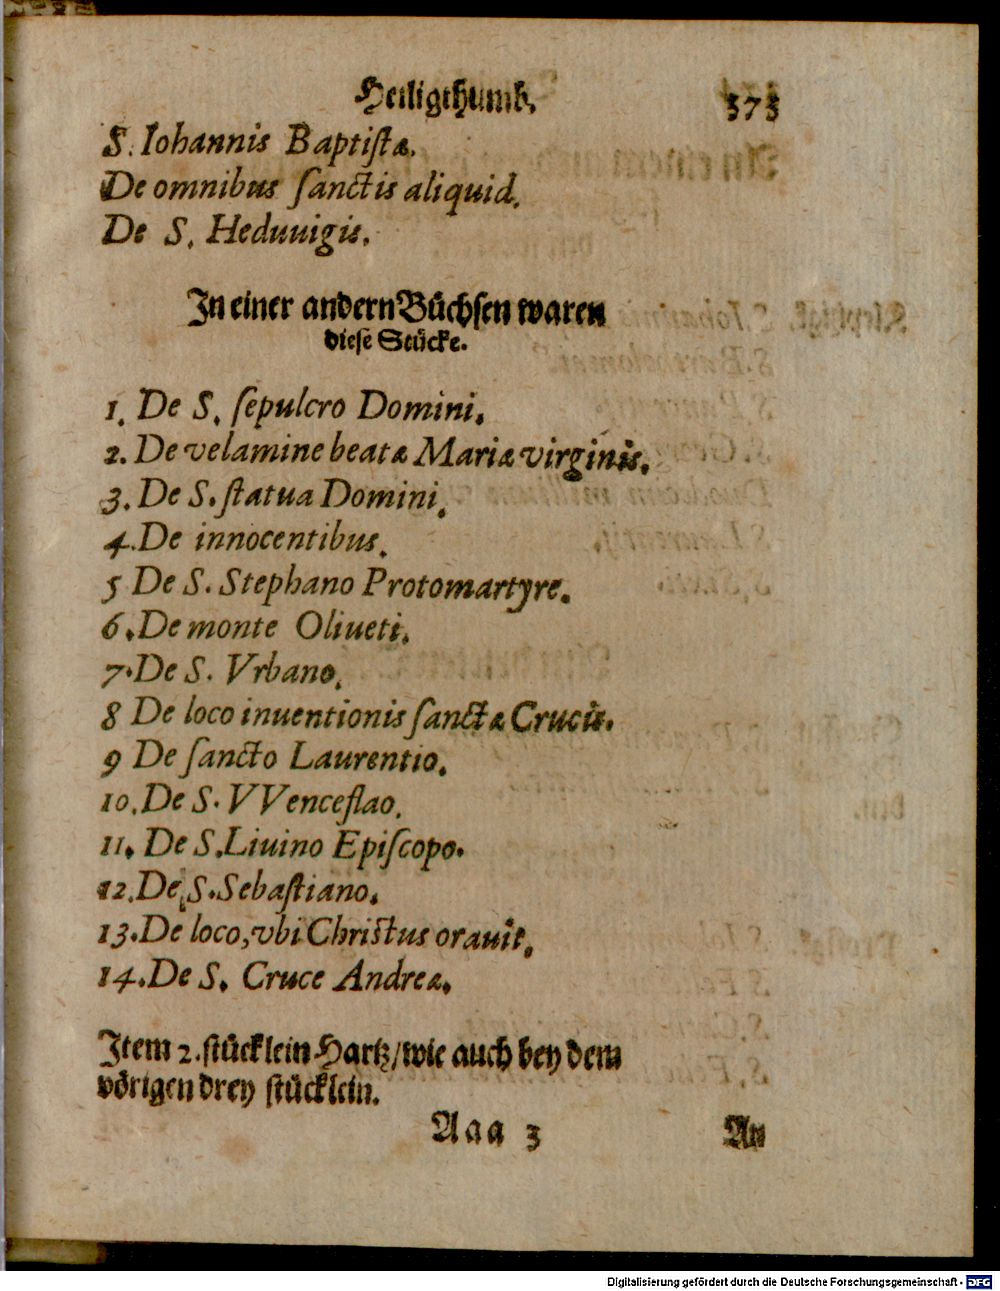 Heiligthumb. 373
S. Iohannis Baptistæ.
De omnibus sanctis aliquid.
De S. Heduuigis.
In einer andern Büchsen waren
diese Stücke.
1. De S. sepulcro Domini.
2. De velamine beatæ Mariæ virginis.
3. De S. statua Domini.
4. De innocentibus.
5 De S. Stephano Protomartyre.
6. De monte Oliueti.
7. De S. Vrbano.
8 De loco inuentionis sanctæ Crucis.
9 De sancto Laurentio.
10. De S. VVenceslao.
11. De S. Liuino Episcopo.
12. De S. Sebastiano.
13. De loco, vbi Christus orauit.
14. De S. Cruce Andreæ.
Item 2. stücklein Hartz/ wie auch bey dem
vörigen drey stücklein.
Aaa 3 An
Digitalisierung gefördert durch die Deutsche Forschungsgemeinschaft - DFG